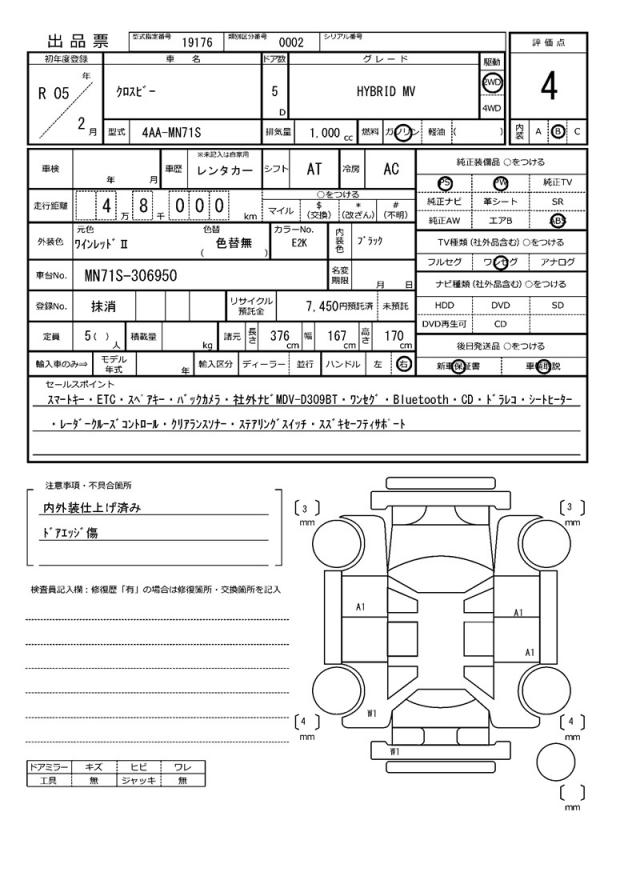 出品票
型式指定番号 19176 類別区分番号 0002 シリアル番号
評価点
初年度登録 車名 ドア数 グレード 駆動
R 05 年 2 月
ｸﾛｽﾋﾞｰ 5 D HYBRID MV 2WD 4WD
4
型式 4AA-MN71S 排気量 1.000 cc 燃料 ガソリン 軽油 ( )
内装 A B C
車検 年 月 車歴 ※未記入は自家用 レンタカー シフト AT 冷房 AC
純正装備品 ○をつける
PS PW 純正TV
純正ナビ 革シート SR
純正AW エアB ABS
走行距離 4 万 8 千 0 0 0 km
○をつける
マイル $ (交換) * (改ざん) # (不明)
外装色 元色 ﾜｲﾝﾚｯﾄﾞⅡ 色替 ( 色替無 ) カラーNo. E2K 内装色 ﾌﾞﾗｯｸ
TV種類(社外品含む) ○をつける
フルセグ ワンセグ アナログ
車台No. MN71S-306950 名変期限 月 日
ナビ種類(社外品含む) ○をつける
HDD DVD SD
DVD再生可 CD
登録No. 抹消 リサイクル預託金 7,450円預託済 未預託
定員 5( ) 人 積載量 kg 諸元 長さ 376 cm 幅 167 cm 高さ 170 cm
後日発送品 ○をつける
新車保証書 車輌取説
輸入車のみ⇒ モデル年式 年 輸入区分 ディーラー 並行 ハンドル 左 右
セールスポイント
ｽﾏｰﾄｷｰ・ETC・ｽﾍﾟｱｷｰ・ﾊﾞｯｸｶﾒﾗ・社外ﾅﾋﾞMDV-D309BT・ﾜﾝｾｸﾞ・Bluetooth・CD・ﾄﾞﾗﾚｺ・ｼｰﾄﾋｰﾀｰ
・ﾚｰﾀﾞｰｸﾙｰｽﾞｺﾝﾄﾛｰﾙ・ｸﾘｱﾗﾝｽｿﾅｰ・ｽﾃｱﾘﾝｸﾞｽｲｯﾁ・ｽｽﾞｷｾｰﾌﾃｨｻﾎﾟｰﾄ
注意事項・不具合箇所
内外装仕上げ済み
ﾄﾞｱｴｯｼﾞ傷
検査員記入欄：修復歴「有」の場合は修復箇所・交換箇所を記入
3 mm
3 mm
A1
A1
A1
W1
W1
4 mm
4 mm
mm
ドアミラー キズ ヒビ ワレ
工具 無 ジャッキ 無